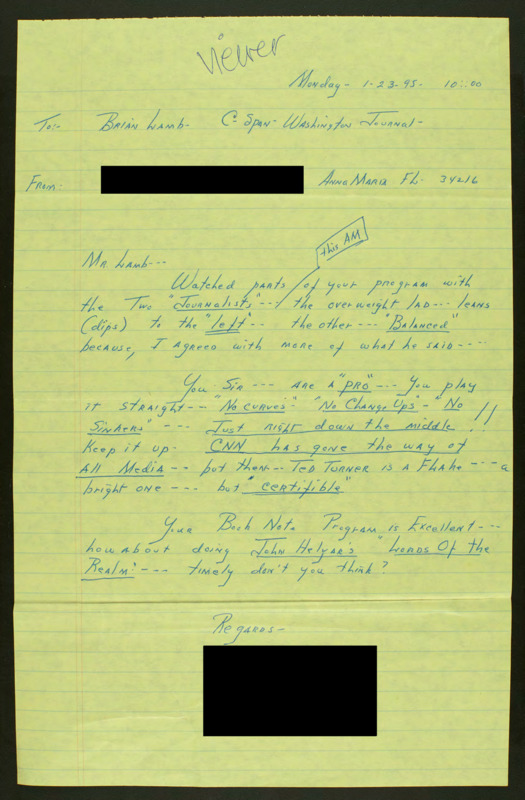 viewer
Monday - 1-23-95- 10:00
To:- Brian Lamb- C-Span- Washington Journal-
From: Anna Maria FL- 34216
this AM
Mr. Lamb---
Watched parts of your program with
the Two "Journalists"--- the overweight lad--- leans
(dips) to the "left"-- the other--- "Balanced"
because, I agreed with more of what he said----
You Sir--- are a "pro"--- You play
it straight-- "No curves" "No Change Ups"- "No
Sinkers" --- Just right down the middle!!
Keep it up- CNN has gone the way of
All Media-- but then-- Ted Turner is a Fhake--- a
bright one--- but "certifible"
Your Book Note Program is Excellent---
how about doing John Helyar's "Lords Of the
Realm"--- timely don't you think?
Regards-